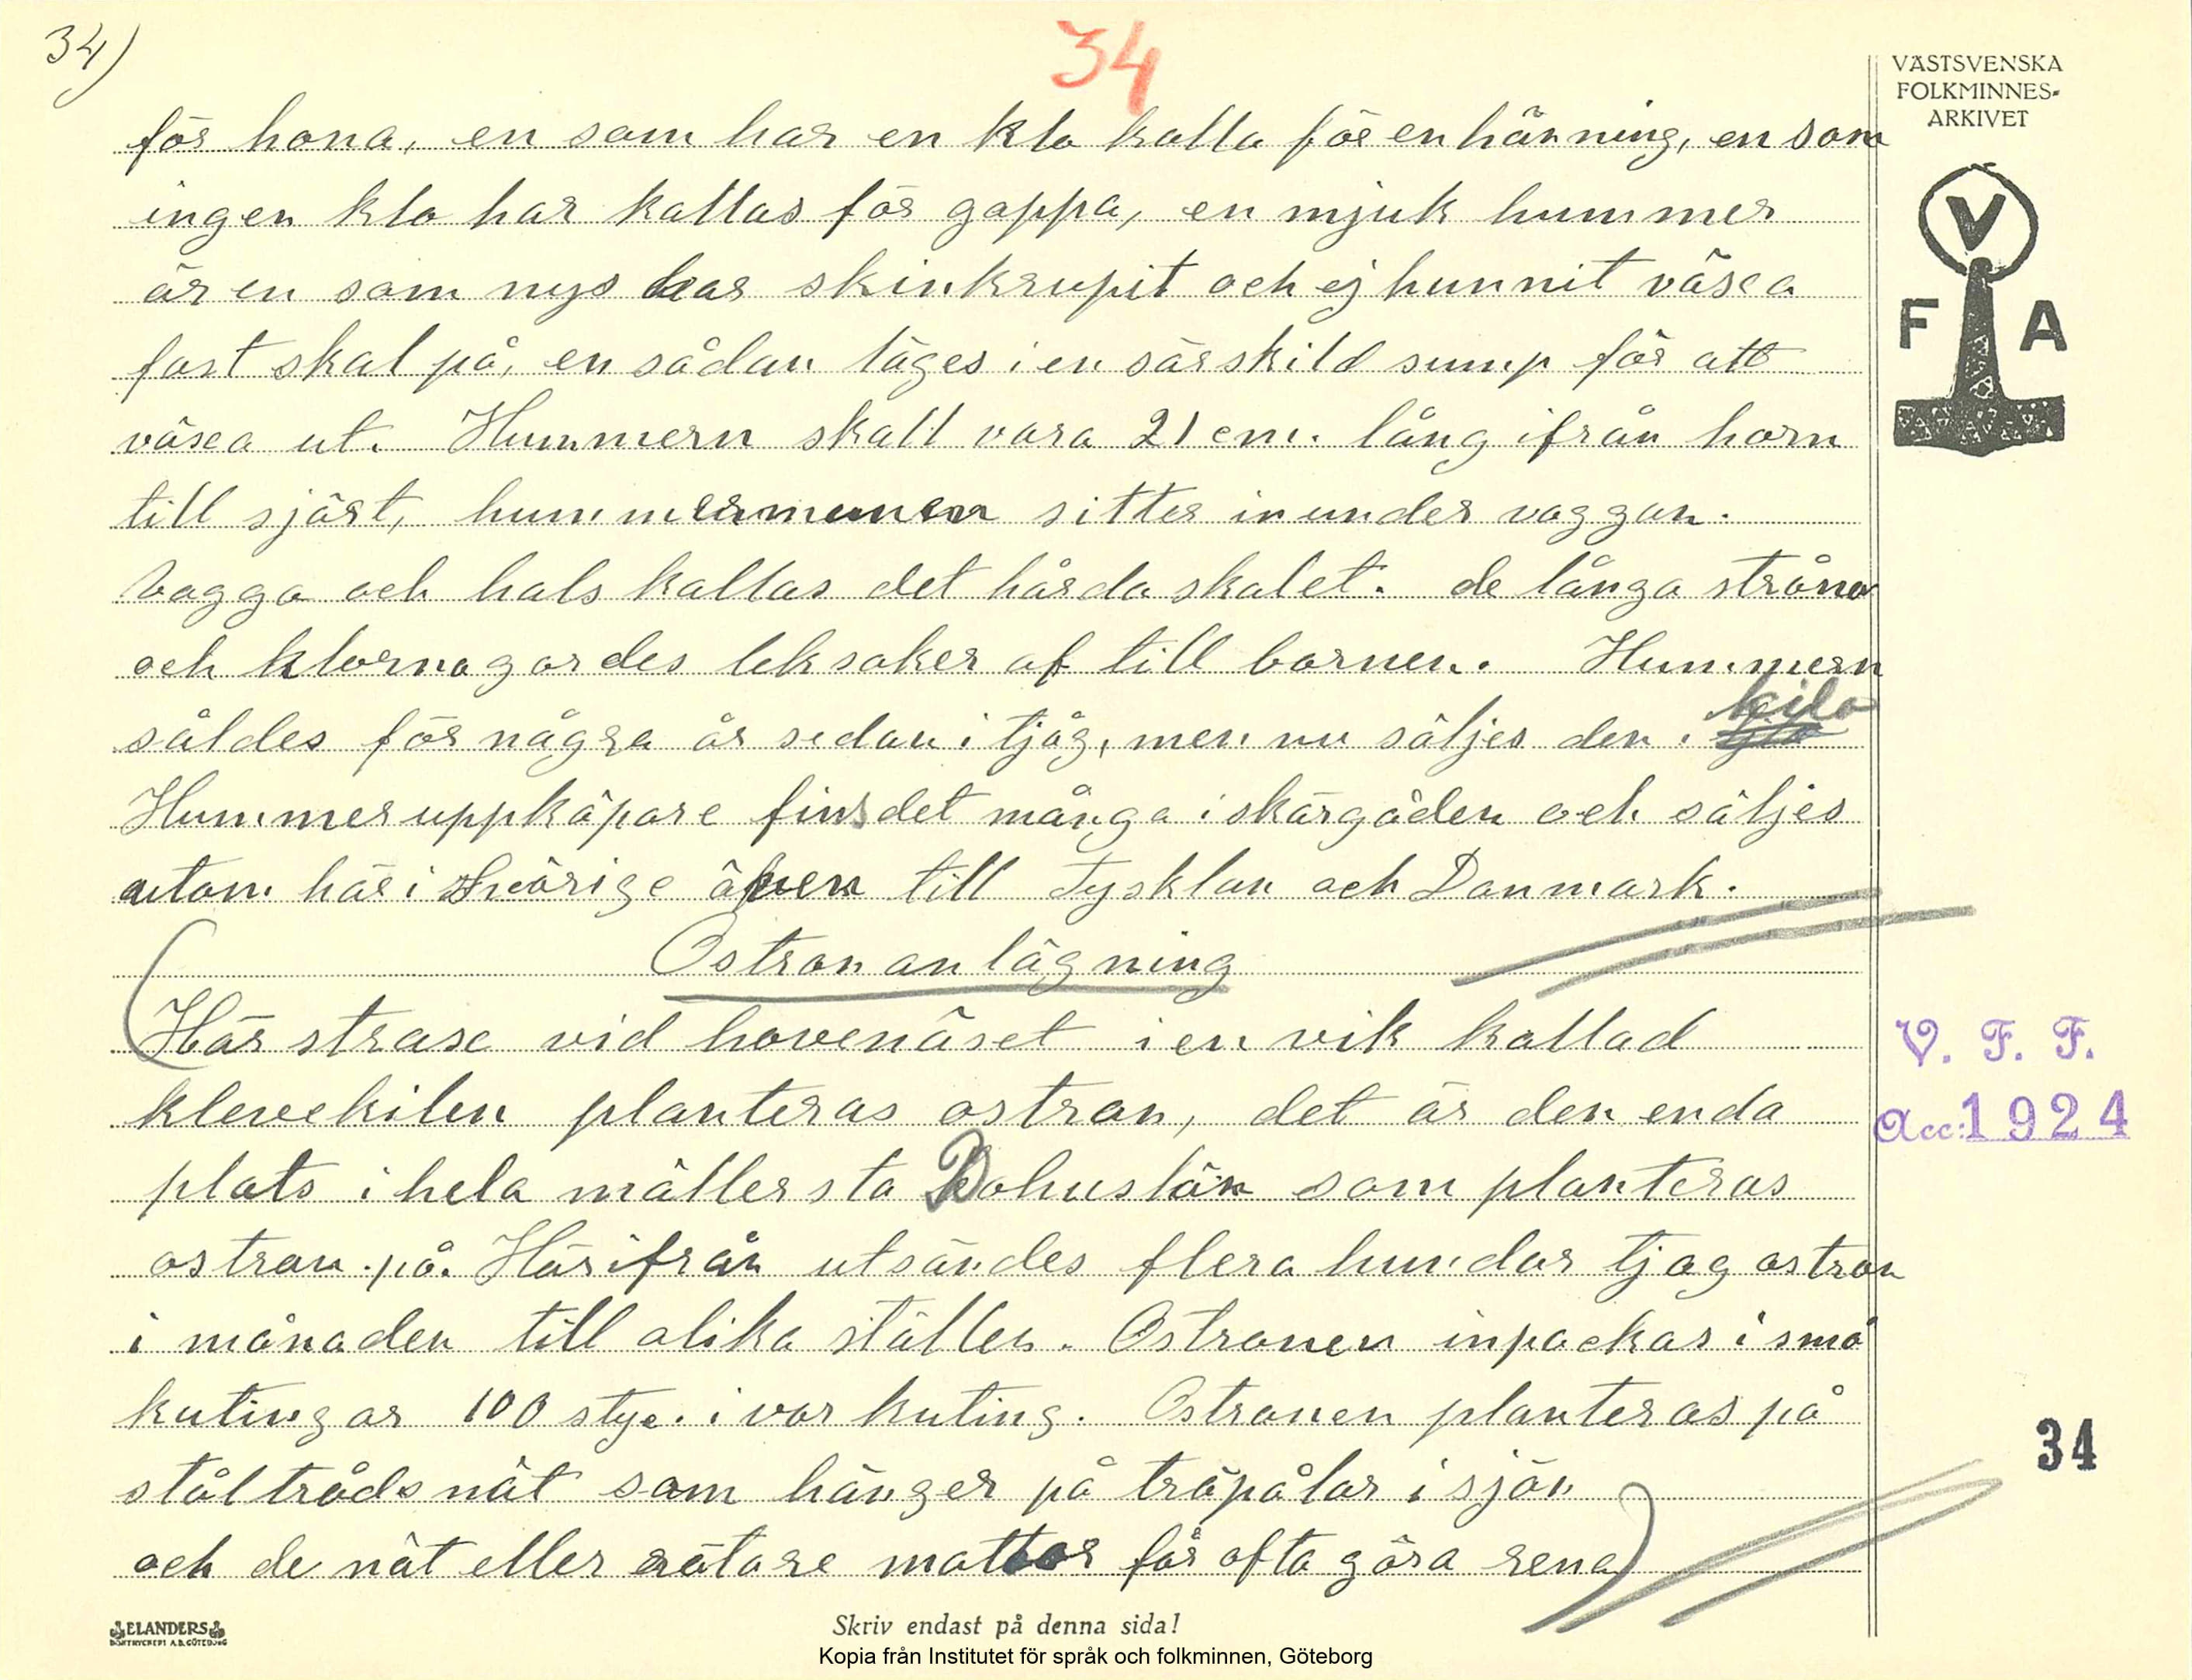 34)
34
VÄSTSVENSKA
FOLKMINNES-
ARKIVET
V
F A
för hona, en som har en klo kalla för en hänning, en som
ingen klo har kallas för gappa, en mjuk hummer
är en som nys har skinkrupit och ej hunnit växa
fast skal på, en sådan täges i en särskild sump för att
växa ut. Hummern skall vara 21 cm. lång ifrån horn
till sjärt, hummermunen sitter inunder vaggan.
Vagga och hals kallas det hårda skalet. de långa stråna
och klorna gordes leksaker af till barnen. Hummern
kilo
såldes för några år sedan i tjåg, men nu säljes den i
Hummeruppköpare fins det många i skärgåden och säljes
utom här i Svärige även till Tysklan och Danmark.
Ostronanlägning
Här straxe vid hovenäset i en vik kallad
klevekilen planteras ostron, det är den enda
plats i hela mällersta Bohuslän som planteras
ostron på. Härifrån utsändes flera hundar tjog ostron
i månaden till olika ställen. Ostronen inpackas i små
kutingar 100 styc. i var kuting. Ostronen planteras på
ståltrådsnät som hänger på träpålar i sjön
och de nät eller rätare mattor får ofta göra rena
V. F. F.
Acc: 1924
34
ELANDERS
BOKTRYCKERI A.B. GÖTEBORG
Skriv endast på denna sida!
Kopia från Institutet för språk och folkminnen, Göteborg